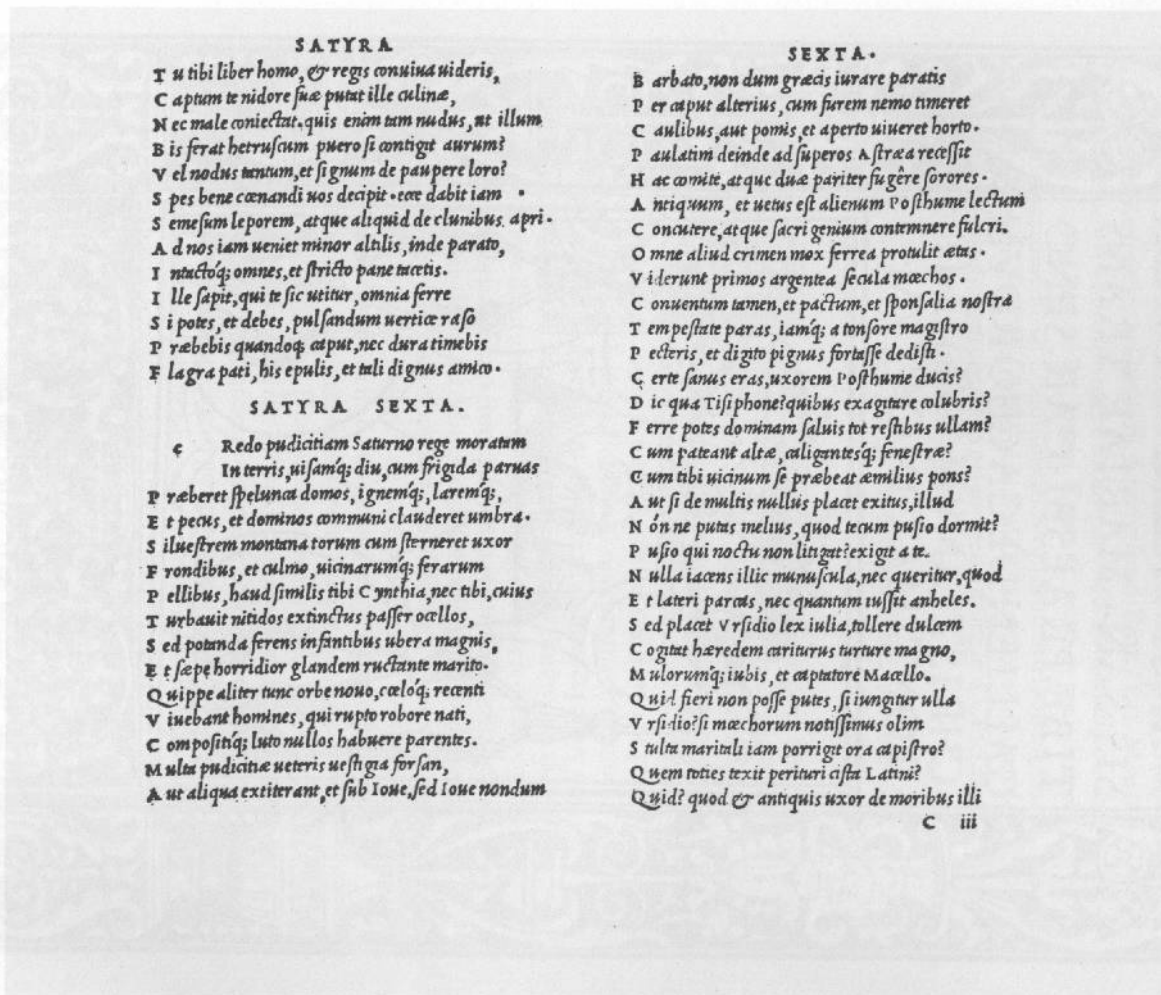 SATYRA
T u tibi liber homo, & regis conuiua uideris,
C aptum te nidore suæ putat ille culinæ,
N ec male coniectat. quis enim tam nudus, ut illum
B is ferat hetruscum puero si contigit aurum?
V el nodus tantum, et signum de paupere loro?
S pes bene cœnandi uos decipit. ecce dabit iam
S emesum leporem, atque aliquid de clunibus apri.
A d nos iam ueniet minor altilis, inde parato,
I ntactoq́; omnes, et stricto pane tacetis.
I lle sapit, qui te sic utitur, omnia ferre
S i potes, et debes, pulsandum uertice raso
P ræbebis quandoq; caput, nec dura timebis
F lagra pati, his epulis, et tali dignus amico.
SATYRA SEXTA.
c Redo pudicitiam Saturno rege moratam
In terris, uisamq́; diu, cum frigida paruas
P ræberet spelunca domos, ignemq́;, laremq́;,
E t pecus, et dominos communi clauderet umbra.
S iluestrem montana torum cum sterneret uxor
F rondibus, et culmo, uicinarumq́; ferarum
P ellibus, haud similis tibi Cynthia, nec tibi, cuius
T urbauit nitidos extinctus passer ocellos,
S ed potanda ferens infantibus ubera magnis,
E t sæpe horridior glandem ructante marito.
Quippe aliter tunc orbe nouo, cœloq́; recenti
V iuebant homines, qui rupto robore nati,
C ompositiq́; luto nullos habuere parentes.
M ulta pudicitiæ ueteris uestigia forsan,
A ut aliqua extiterant, et sub Ioue, sed Ioue nondum
SEXTA.
B arbato, non dum græcis iurare paratis
P er caput alterius, cum furem nemo timeret
C aulibus, aut pomis, et aperto uiueret horto.
P aulatim deinde ad superos Astræa recessit
H ac comite, atque duæ pariter fugêre sorores.
A ntiquum, et uetus est alienum Posthume lectum
C oncutere, atque sacri genium contemnere fulcri.
O mne aliud crimen mox ferrea protulit ætas.
V iderunt primos argentea secula mœchos.
C onuentum tamen, et pactum, et sponsalia nostra
T empestate paras, iamq́; a tonsore magistro
P ecteris, et digito pignus fortasse dedisti.
C erte sanus eras, uxorem Posthume ducis?
D ic qua Tisiphone? quibus exagitare colubris?
F erre potes dominam saluis tot restibus ullam?
C um pateant altæ, caligantesq́; fenestræ?
C um tibi uicinum se præbeat æmilius pons?
A ut si de multis nullus placet exitus, illud
N ón ne putas melius, quod tecum pusio dormit?
P usio qui noctu non litigat? exigit a te.
N ulla iacens illic munuscula, nec queritur, quod
E t lateri parcas, nec quantum iussit anheles.
S ed placet Vrsidio lex iulia, tollere dulcem
C ogitat hæredem cariturus turture magno,
M ulorumq́; iubis, et captatore Macello.
Quid fieri non posse putes, si iungitur ulla
V rsidio? si mœchorum notissimus olim
S tulta maritali iam porrigit ora capistro?
Quem toties texit perituri cista Latini?
Quid? quod & antiquis uxor de moribus illi
C iii